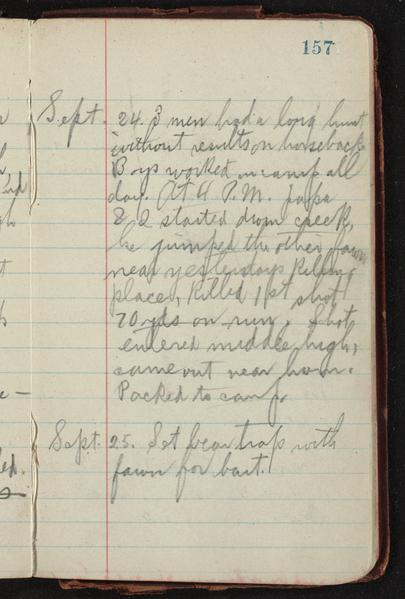 157
Sept. 24. 3 men had a long hunt
without results on horseback
Boys worked on camp all
day. At 4 P.M. papa
& I started down creek,
he jumped the other fawn
near yesterdays killing
place, killed 1st shot
70 yds on run, shot
entered middle high,
came out near ham.
Packed to camp.
Sept. 25. Set bear trap with
fawn for bait.